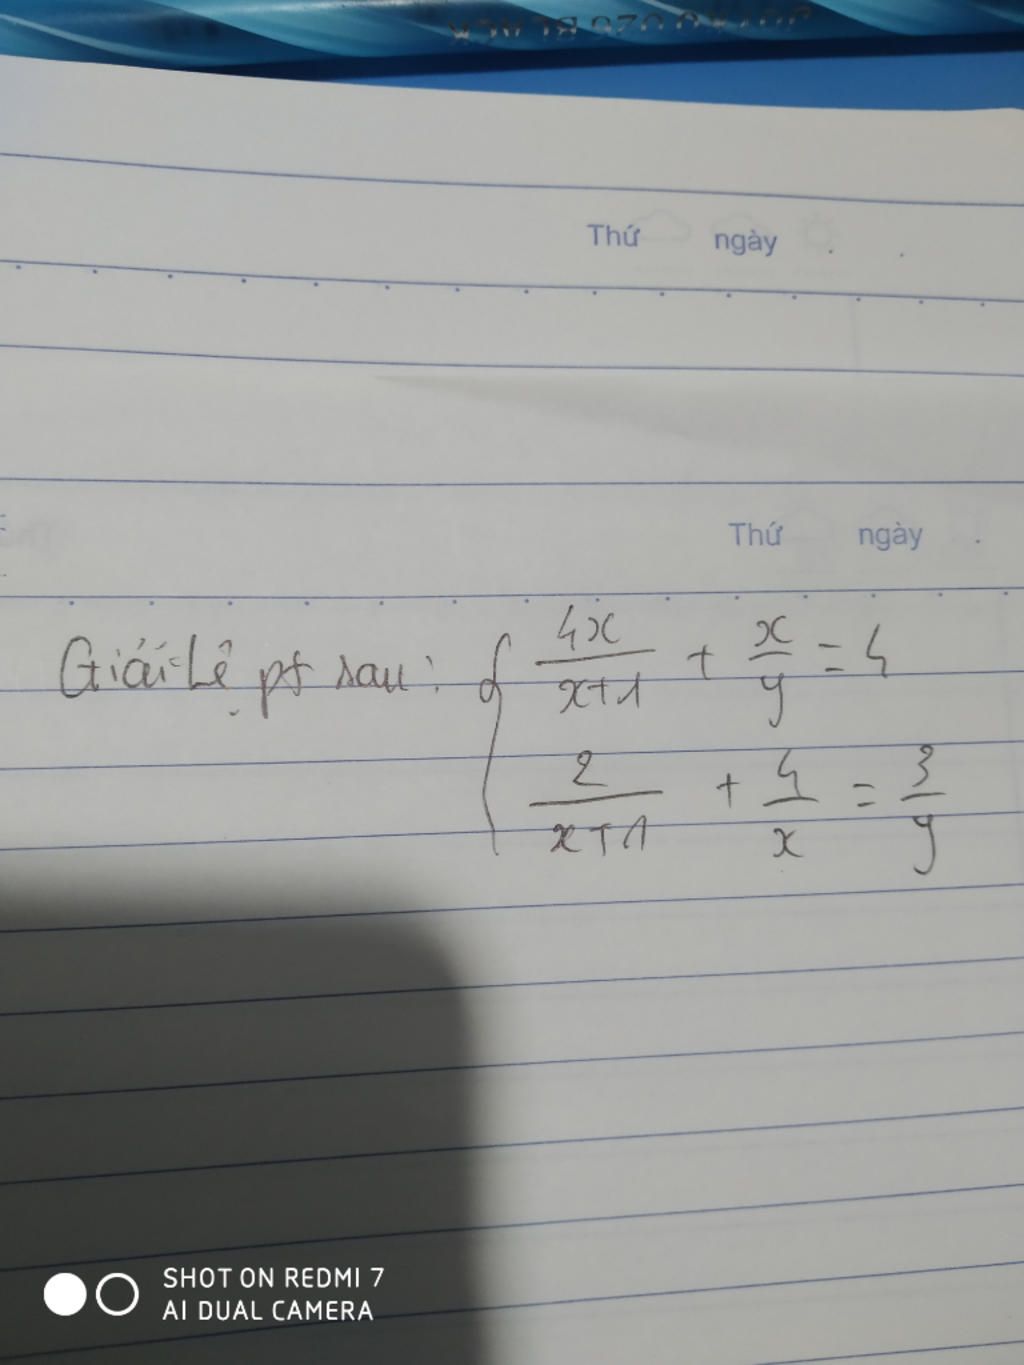 Thứ ngày . .
Thứ ngày .
Giải hệ pt sau: { 4x/(x+1) + x/y = 4
2/(x+1) + 4/x = 3/y
SHOT ON REDMI 7
AI DUAL CAMERA